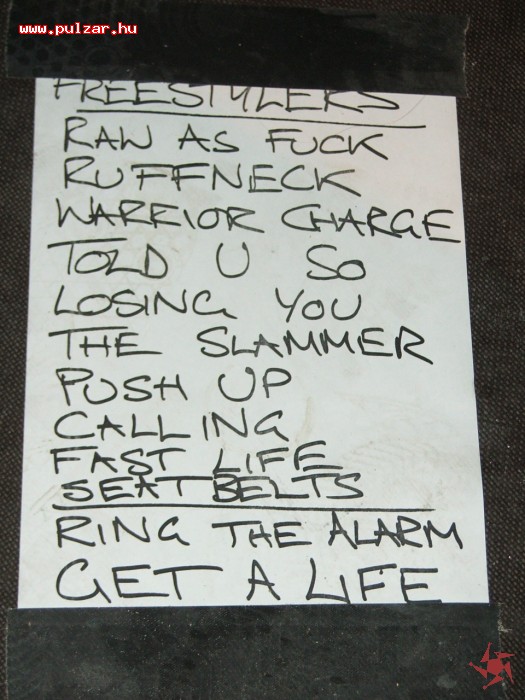 www.pulzar.hu
FREESTYLERS
RAW AS FUCK
RUFFNECK
WARRIOR CHARGE
TOLD U SO
LOSING YOU
THE SLAMMER
PUSH UP
CALLING
FAST LIFE
SEATBELTS
RING THE ALARM
GET A LIFE